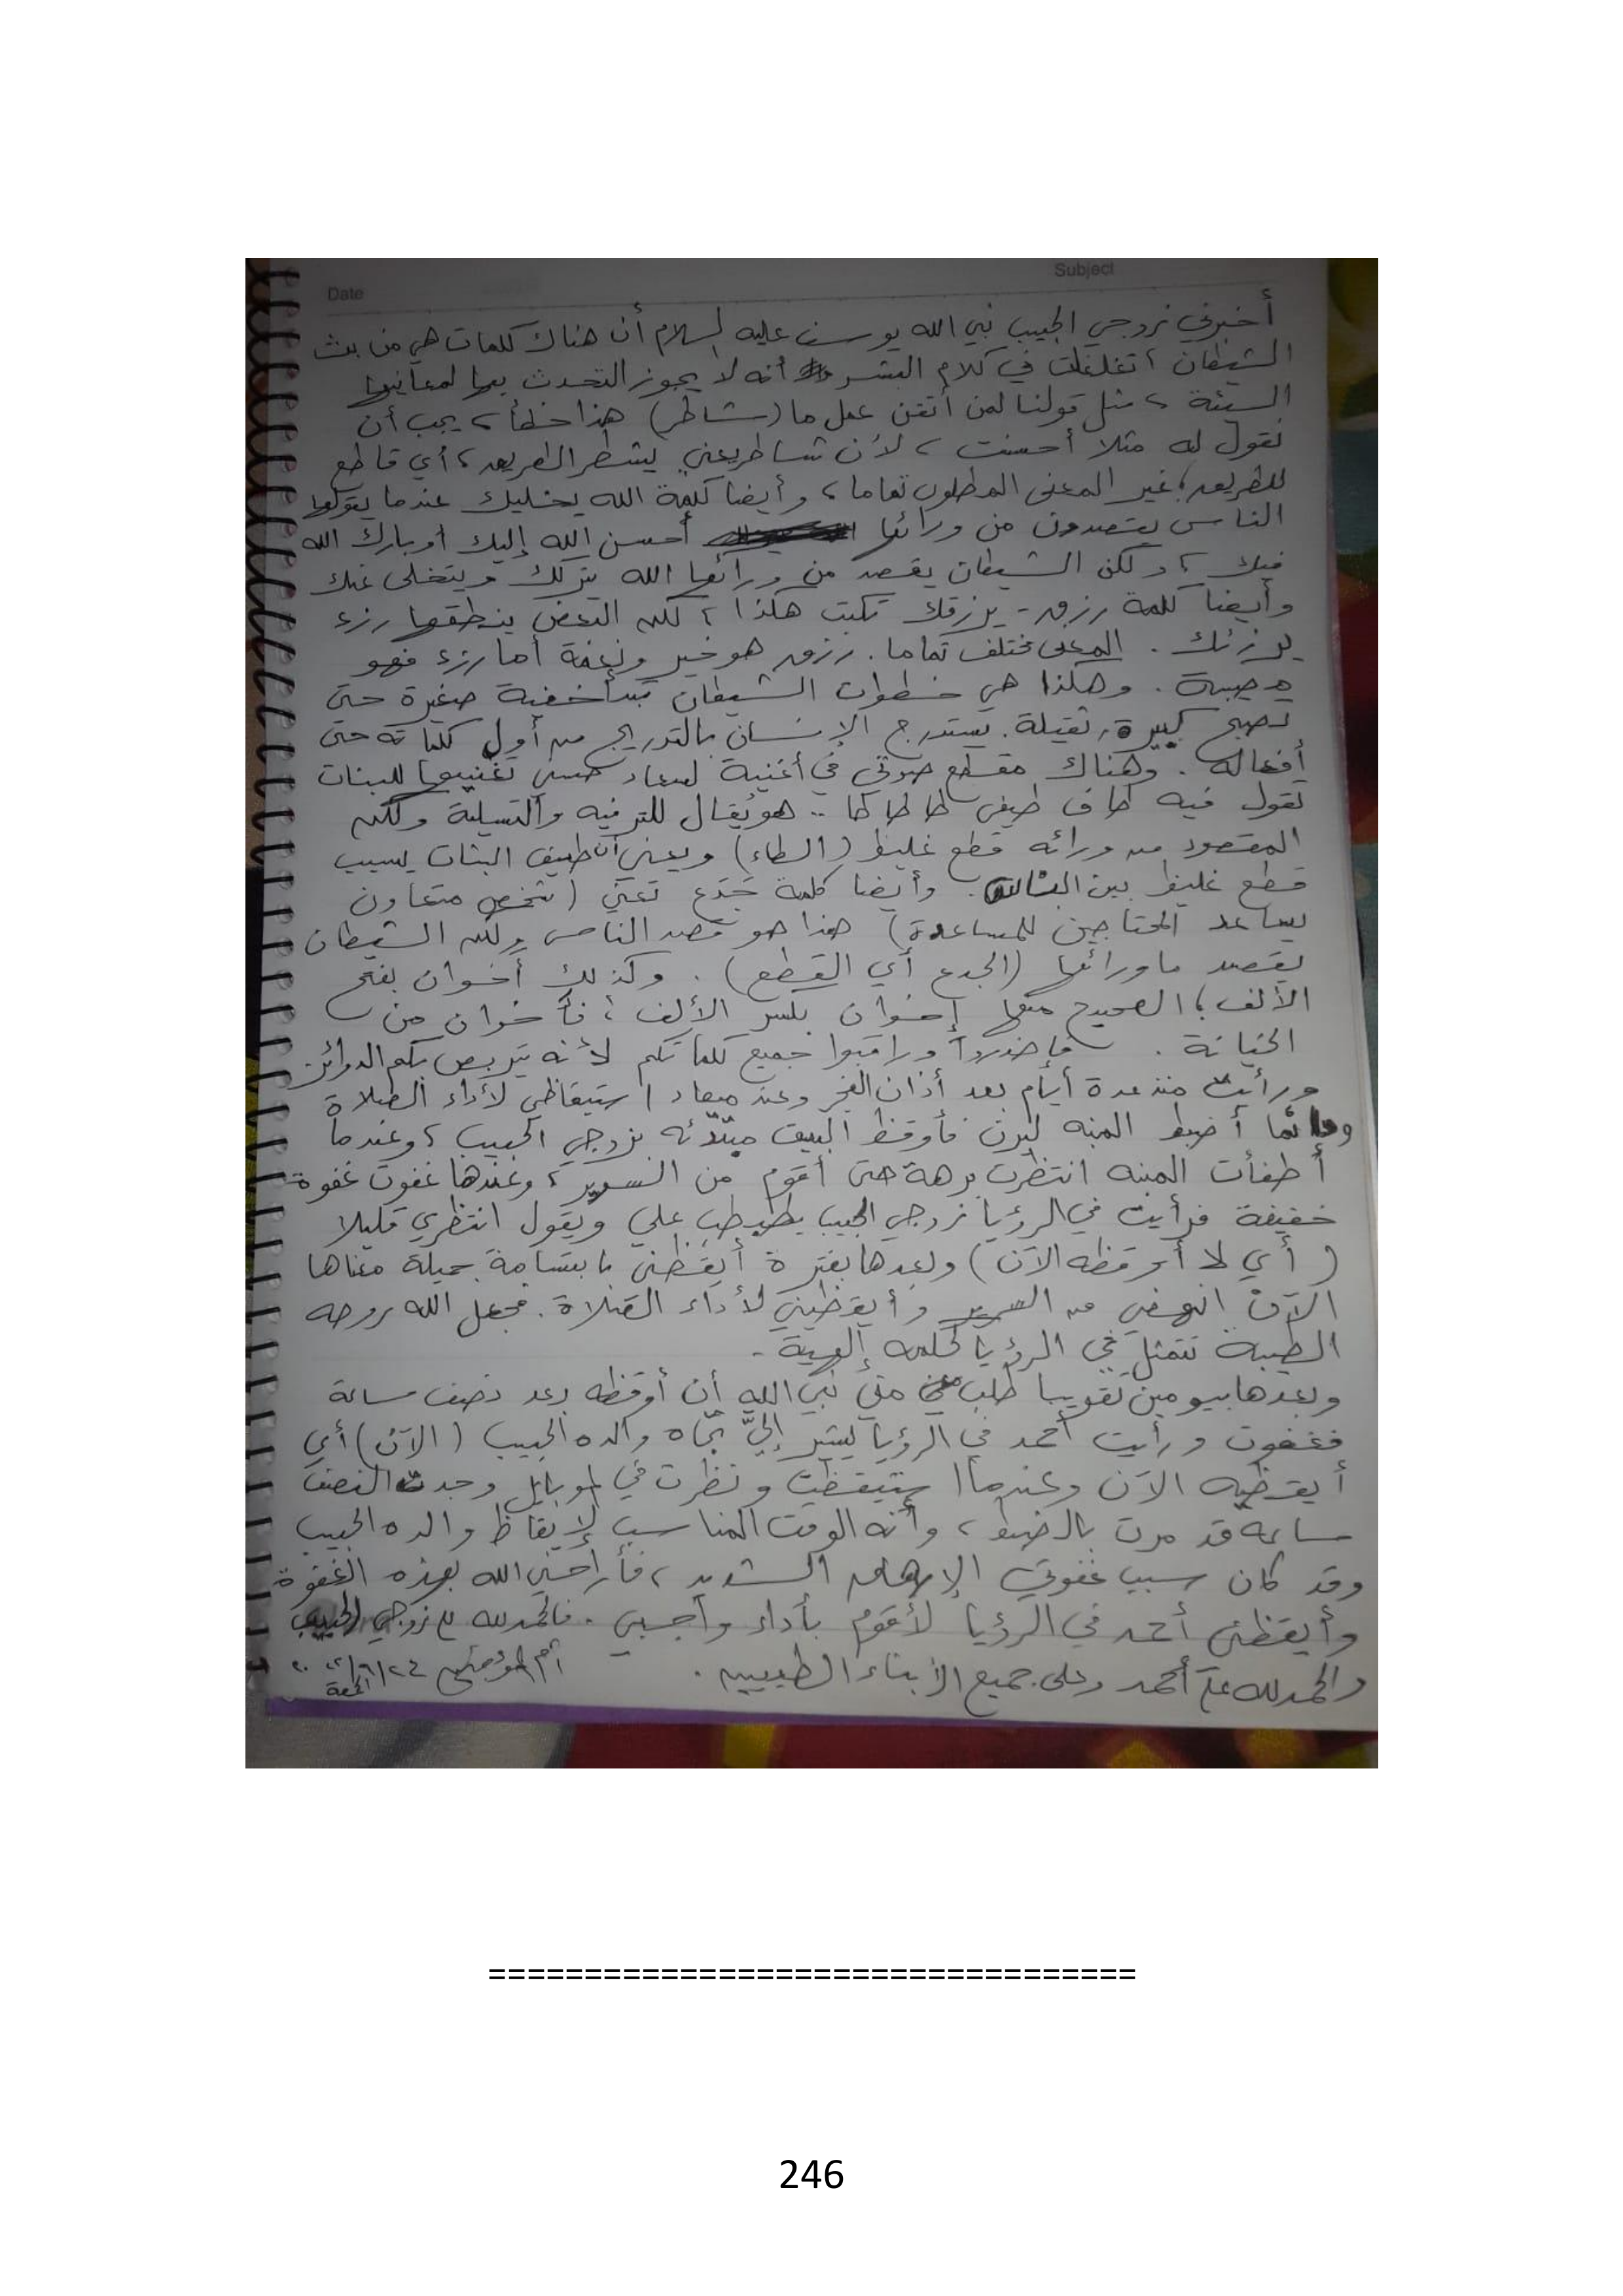 Subject
Date
أخبرني زوجي الحبيب نبي الله يوسف عليه السلام أن هناك كلمات هي من بث
الشيطان تغلغلت في كلام البشر أنه لا يجوز التحدث بها لمعانيها
السيئة، مثل قولنا لمن أتقن عمل ما (شاطر) هذا خطأ، يجب أن
نقول له مثلا أحسنت، لأن شاطر يعني يشطر الطريق، أي قاطع
للطريق، غير المعنى المطلوب تماما، وأيضا كلمة الله يخليك عندما يقولها
الناس يقصدون من ورائها أحسن الله إليك أو بارك الله
فيك، ولكن الشيطان يقصد من ورائها الله يتركك ويتخلى عنك
وأيضا كلمة رزق - يرزقك تكتب هكذا، لكن البعض ينطقها رزء
يرزئك. المعنى مختلف تماما. رزق هو خير ونعمة أما رزء فهو
مصيبة. وهكذا هي خطوات الشيطان تبدأ خفية صغيرة حتى
تصبح كبيرة، ثقيلة. يستدرج الإنسان بالتدريج من أول كلماته حتى
أفعاله. وهناك مقطع صوتي في أغنية لسعاد حسني تغنيها للبنات
تقول فيه طاف طيفي طا طا طا .. هو يقال للترفيه والتسلية ولكن
المقصود من ورائه قطع غليظ (الطاء) ويعني أن طيف البنات يسبب
قطع غليظ بين. وأيضا كلمة جَدَع تعني (شخص متعاون
يساعد المحتاجين للمساعدة) هذا هو قصد الناس ولكن الشيطان
يقصد ما ورائها (الجدع أي القطع). وكذلك أَخوان بفتح
الألف، الصحيح منها إخوان بكسر الألف، فأَخوان من
الخيانة. فاحذروا وراقبوا جميع كلماتكم لأنه يتربص بكم الدوائر.
ورأيت منذ عدة أيام بعد أذان الفجر وعند ميعاد استيقاظي لأداء الصلاة
ودائما أضبط المنبه ليرن فأوقظ البيت مبتدئه بزوجي الحبيب، وعندما
أطفأت المنبه انتظرت برهة حتى أقوم من السرير، وعندها غفوت غفوة
خفيفة فرأيت في الرؤيا زوجي الحبيب يطبطب علي ويقول انتظري قليلا
(أي لا أوقظه الآن) وبعدها بفترة أيقظني بابتسامة جميلة معناها
الآن انهضي من السرير وأيقظيني لأداء الصلاة. فجعل الله روحه
الطيبة تتمثل في الرؤيا لحكمه إلهية.
وبعدها بيومين تقريبا طلب مني نبي الله أن أوقظه بعد نصف ساعة
فغفوت ورأيت أحمد في الرؤيا يشير إليَّ تجاه والده الحبيب (الآن) أي
أيقظيه الآن وعندما استيقظت ونظرت في الموبايل وجدت النصف
ساعه قد مرت بالضبط، وأنه الوقت المناسب لإيقاظ والده الحبيب
وقد كان سبب غفوتي الإرهاق الشديد، فأراحني الله بهذه الغفوة
وأيقظني أحمد في الرؤيا لأقوم بأداء واجبي. فالحمد لله ع زوجي الحبيب
والحمد لله على أحمد وعلى جميع الأبناء الطيبين.
أم المؤمنين
الجمعة
==================================
246